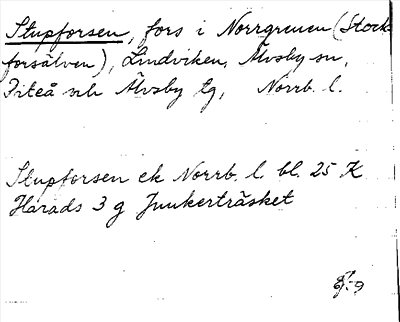 Stupforsen, fors i Norrgrenen (Stock
forsälven), Lindviken, Älvsby sn,
Piteå o. Älvsby tg, Norrb. l.
Stupforsen ek Norrb. l. bl. 25 K
Harads 3 g Junkerträsket